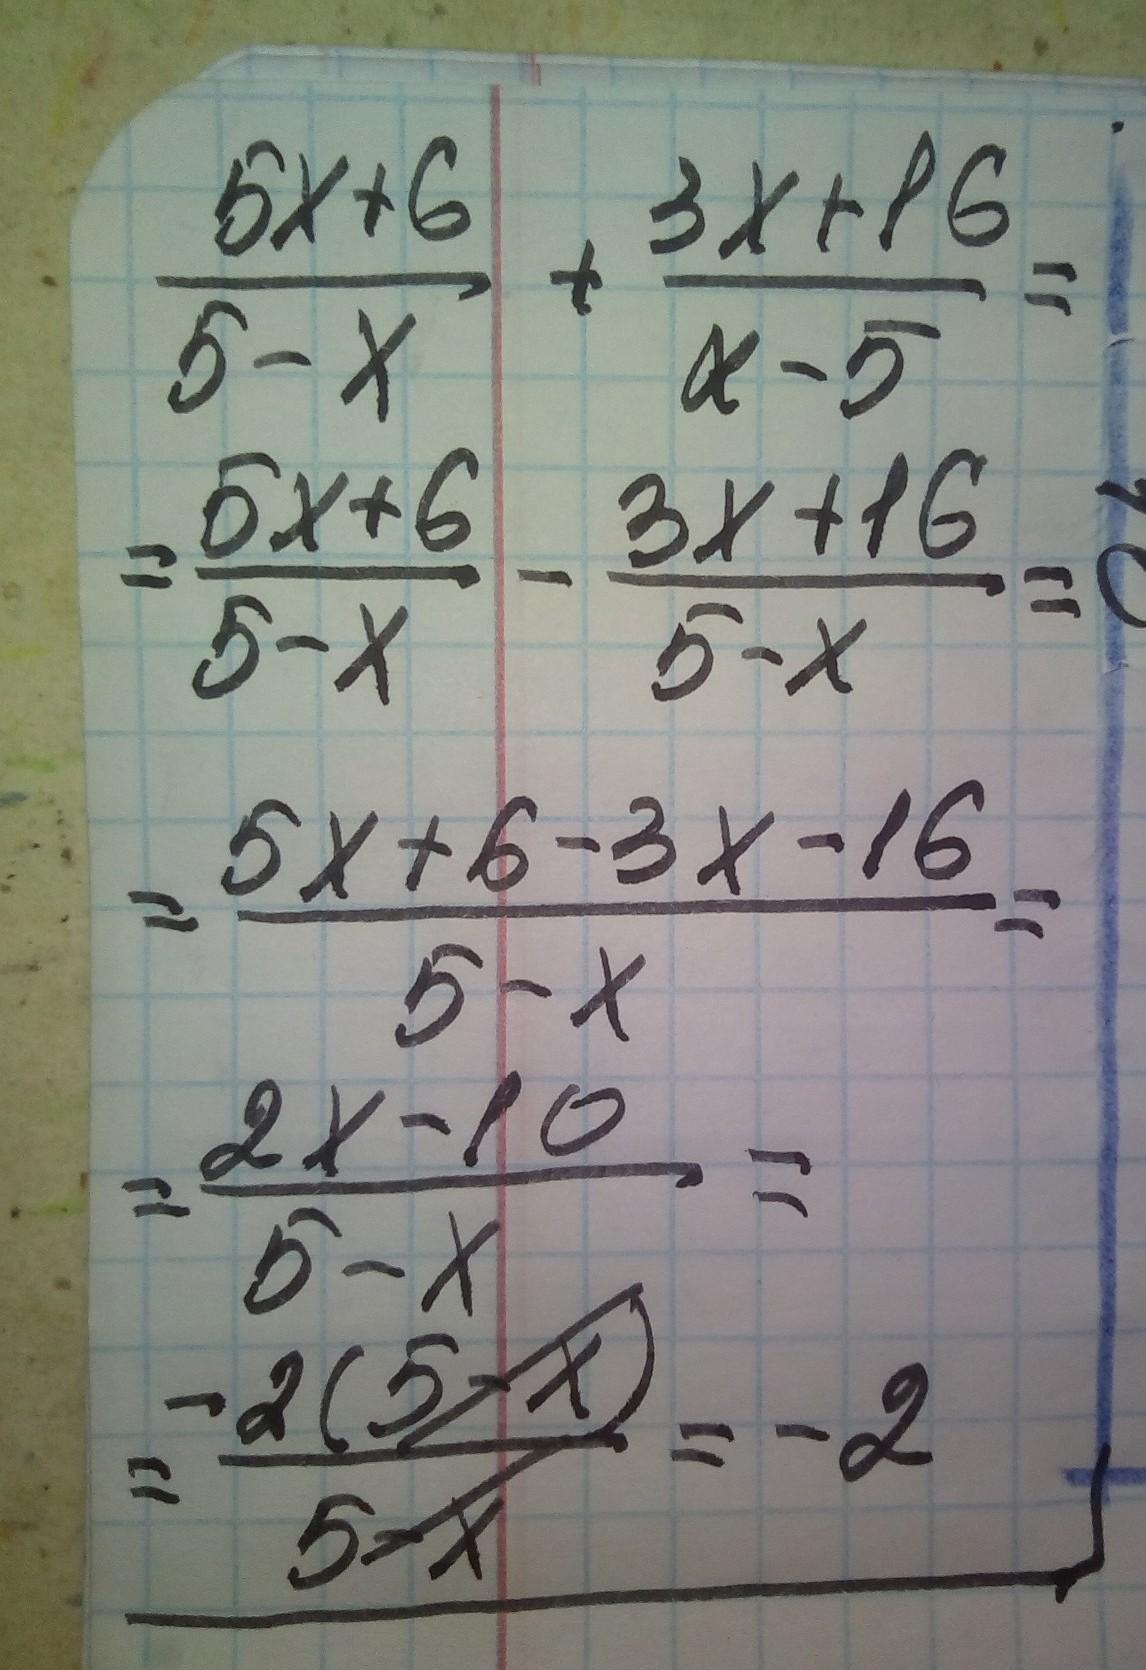 (5x+6)/(5-x) + (3x+16)/(x-5) =
= (5x+6)/(5-x) - (3x+16)/(5-x) =
= (5x+6-3x-16)/(5-x) =
= (2x-10)/(5-x) =
= -2(5-x)/(5-x) = -2